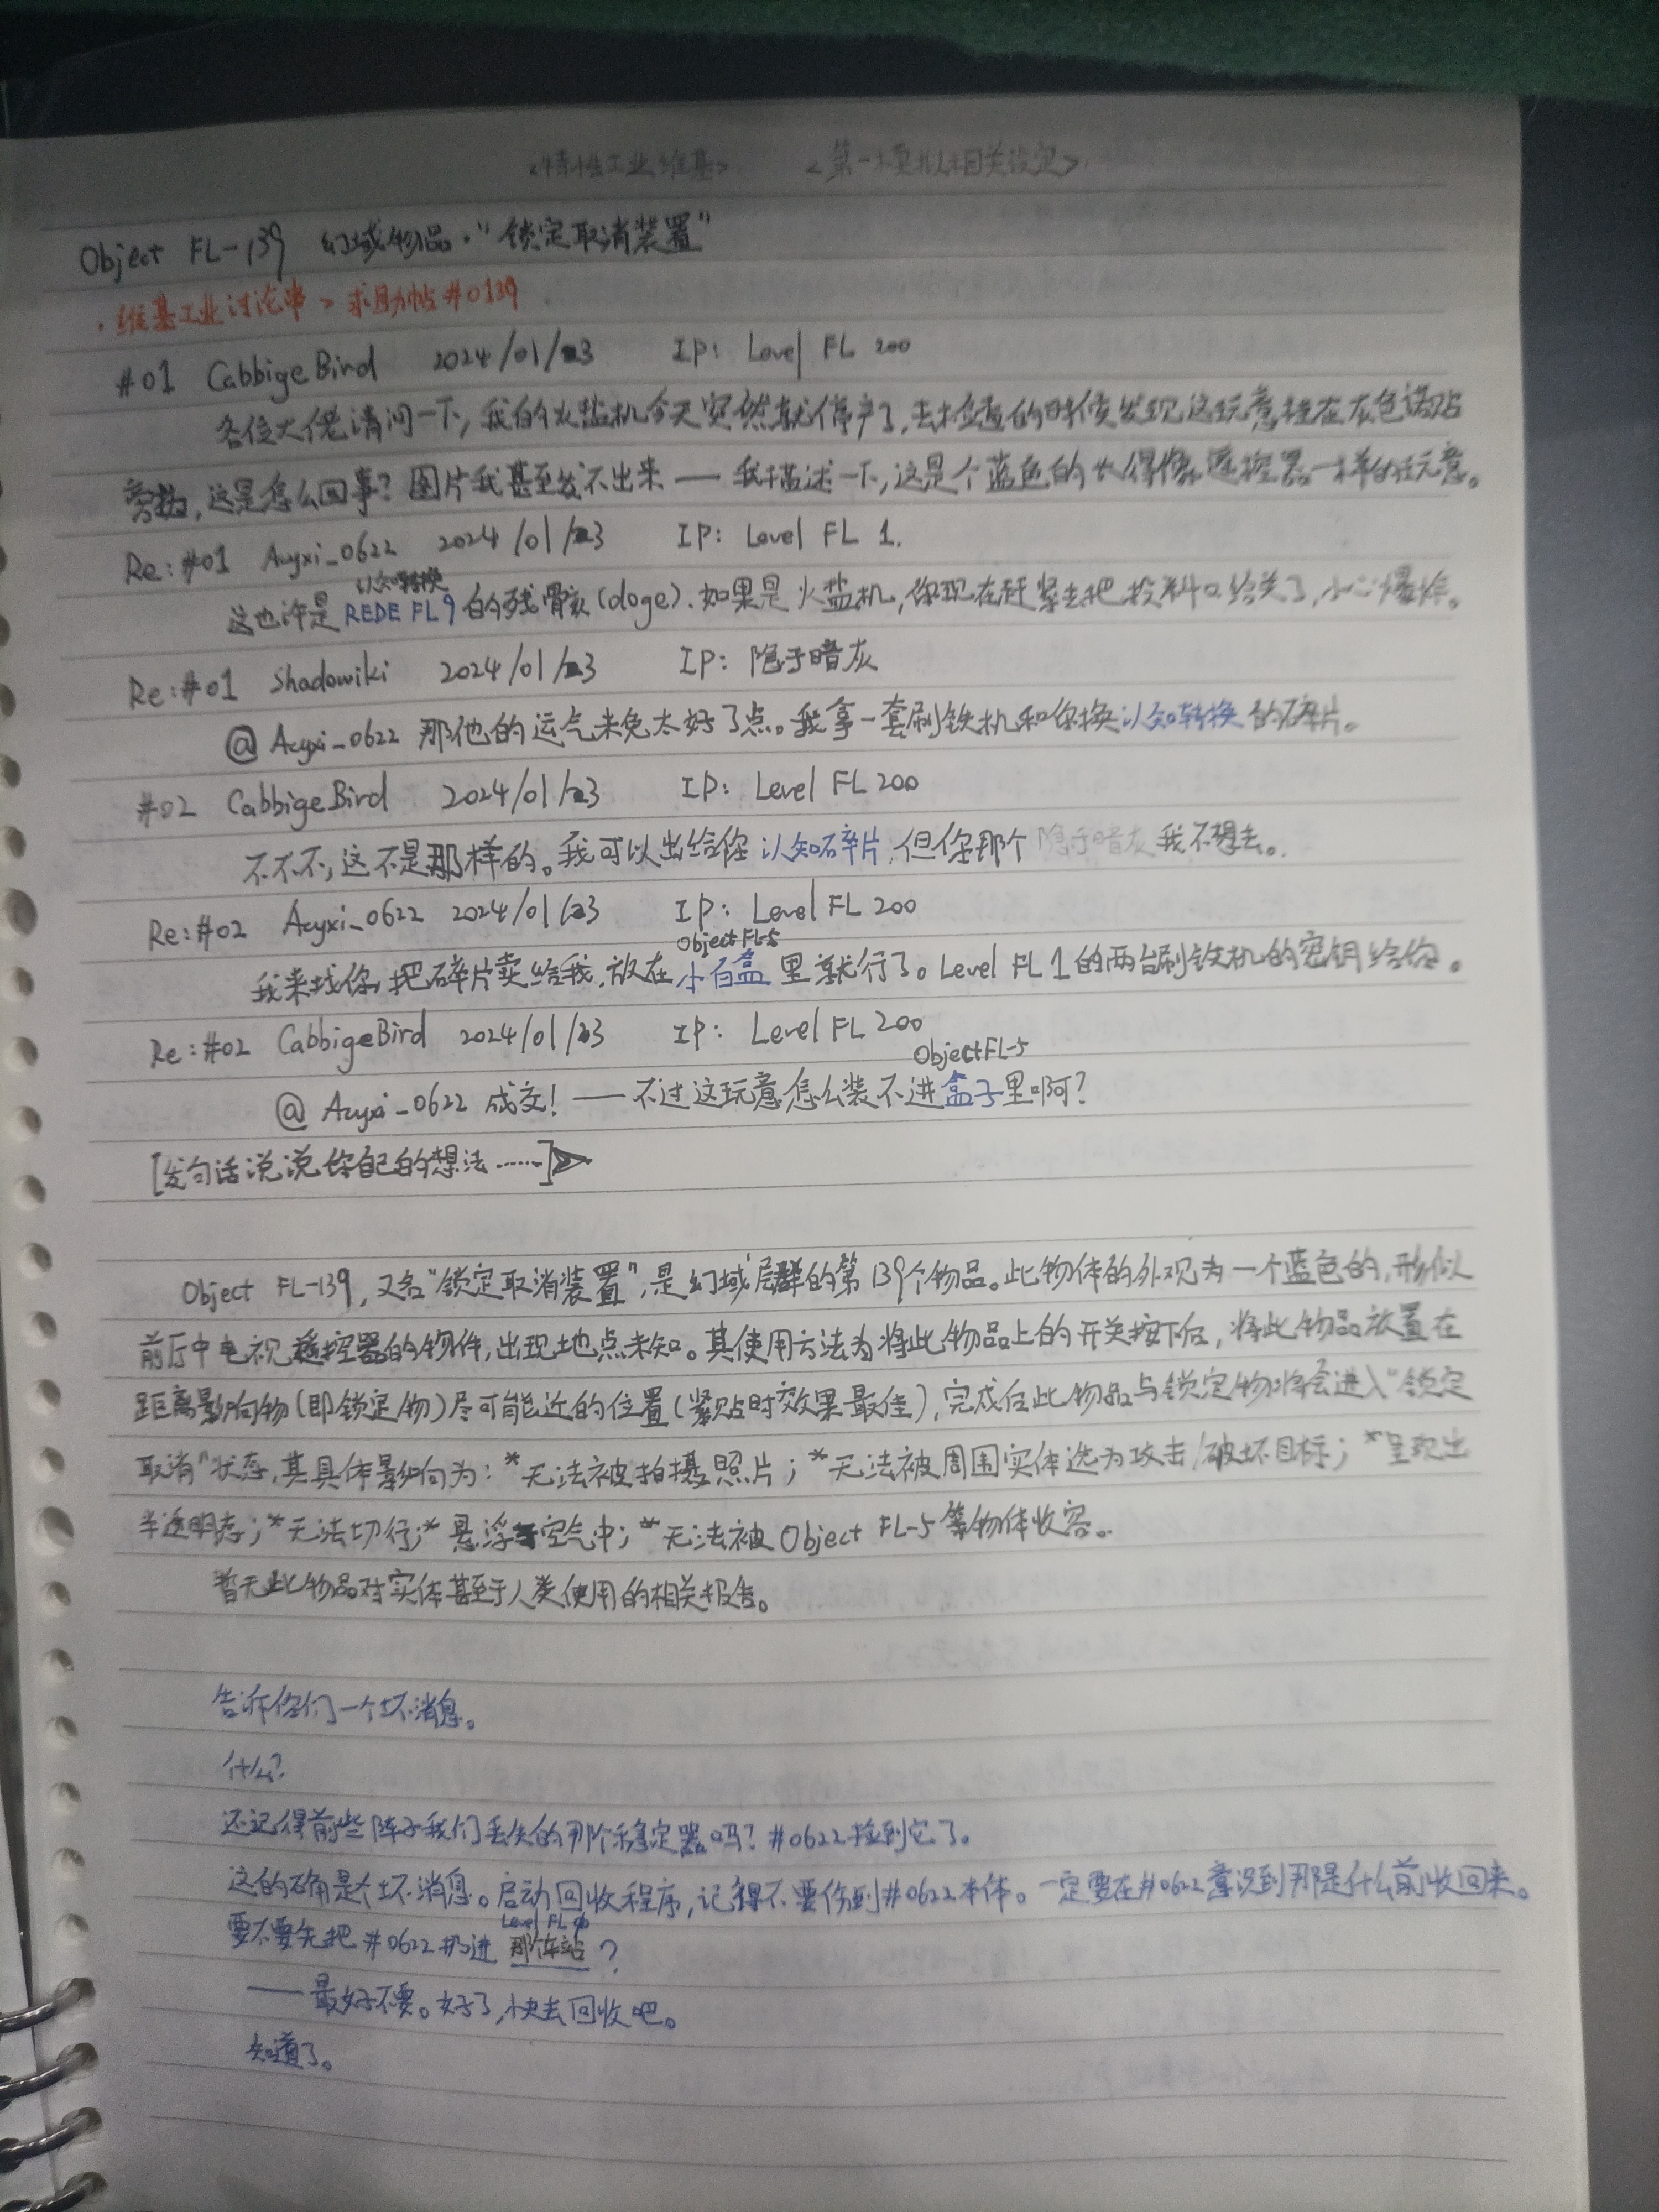 <特性工业维基> <第一模拟相关设定>
Object FL-139 幻域物品·"锁定取消装置"
·维基工业讨论串>求助帖#0139
#01 CabbigeBird 2024/01/23 IP: Level FL 200
各位大佬请问一下,我的火盐机今天突然就停产了,去检查的时候发现这玩意挂在灰色诺贴
旁边,这是怎么回事?图片我甚至发不出来——我描述一下,这是个蓝色的长得像遥控器一样的玩意。
Re:#01 Acyxi_0622 2024/01/23 IP: Level FL 1.
认知转换
这也许是REDE FL9的残骸(doge).如果是火盐机,你现在赶紧去把投料口给关了,小心爆炸。
Re:#01 Shadowiki 2024/01/23 IP: 隐于暗灰
@Acyxi_0622 那他的运气未免太好了点。我拿一套刷铁机和你换认知转换的碎片。
#02 CabbigeBird 2024/01/23 IP: Level FL 200
不不不,这不是那样的。我可以出给你认知碎片,但你那个隐于暗灰我不想去。
Re:#02 Acyxi_0622 2024/01/23 IP: Level FL 200
Object FL-5
我来找你,把碎片卖给我,放在小白盒里就行了。Level FL 1的两台刷铁机的密钥给你。
Re:#02 CabbigeBird 2024/01/23 IP: Level FL 200
Object FL-5
@Acyxi_0622 成交!——不过这玩意怎么装不进盒子里啊?
[发句话说说你自己的想法……]
Object FL-139,又名"锁定取消装置",是幻域层群的第139个物品。此物体的外观为一个蓝色的,形似
前厅中电视遥控器的物件,出现地点未知。其使用方法为将此物品上的开关按下后,将此物品放置在
距离影响物(即锁定物)尽可能近的位置(紧贴时效果最佳),完成后此物品与锁定物将会进入"锁定
取消"状态,其具体影响为:*无法被拍摄照片;*无法被周围实体选为攻击/破坏目标;*呈现出
半透明态;*无法切行;*悬浮于空气中;*无法被Object FL-5等物体收容。
暂无此物品对实体甚至于人类使用的相关报告。
告诉你们一个坏消息。
什么?
还记得前些阵子我们丢失的那个稳定器吗?#0622捡到它了。
这的确是个坏消息。启动回收程序,记得不要伤到#0622本体。一定要在#0622意识到那是什么前收回来。
Level FL
要不要先把#0622扔进那个车站?
——最好不要。好了,快去回收吧。
知道了。